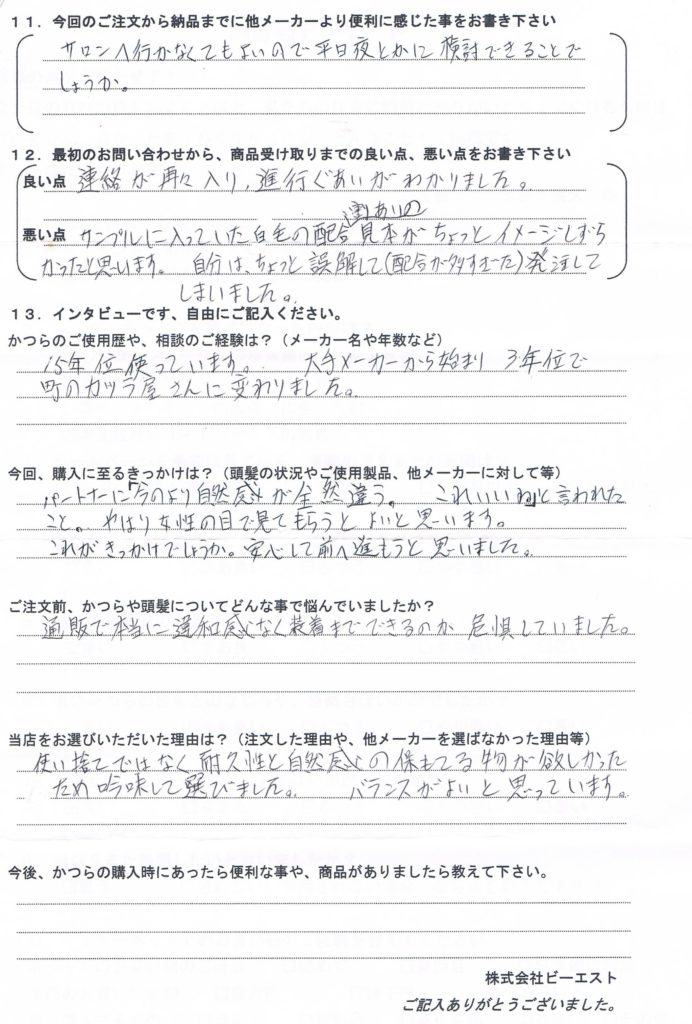 11．今回のご注文から納品までに他メーカーより便利に感じた事をお書き下さい
サロンへ行かなくてもよいので平日夜とかに検討できることで
しょうか。
12．最初のお問い合わせから、商品受け取りまでの良い点、悪い点をお書き下さい
良い点 連絡が再々入り、進行ぐあいがわかりました。
悪い点 サンプルに入っていた白毛の配合見本がちょっとイメージしずら
かったと思います。 自分は、ちょっと誤解して(配合が多すぎた)発注して
しまいました。
13．インタビューです、自由にご記入ください。
かつらのご使用歴や、相談のご経験は？（メーカー名や年数など）
15年位使っています。 大手メーカーから始まり 3年位で
町のカツラ屋さんに変わりました。
今回、購入に至るきっかけは？（頭髪の状況やご使用製品、他メーカーに対して等）
パートナーに「今のより自然感が全然違う。 これいいね」と言われた
こと。 やはり女性の目で見てもらうとよいと思います。
これがきっかけでしょうか。安心して前へ進もうと思いました。
ご注文前、かつらや頭髪についてどんな事で悩んでいましたか？
通販で本当に違和感なく装着までできるのか 危惧していました。
当店をお選びいただいた理由は？（注文した理由や、他メーカーを選ばなかった理由等）
使い捨てではなく耐久性と自然感の保もてる物が欲しかった
ため吟味して選びました。 バランスがよいと思っています。
今後、かつらの購入時にあったら便利な事や、商品がありましたら教えて下さい。
株式会社ビーエスト
ご記入ありがとうございました。